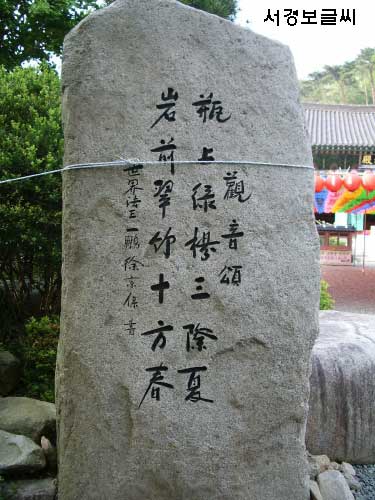 서경보글씨
觀音頌
瓶上綠楊三際夏
岩前翠竹十方春
世界法王一鵬徐京保書
殿